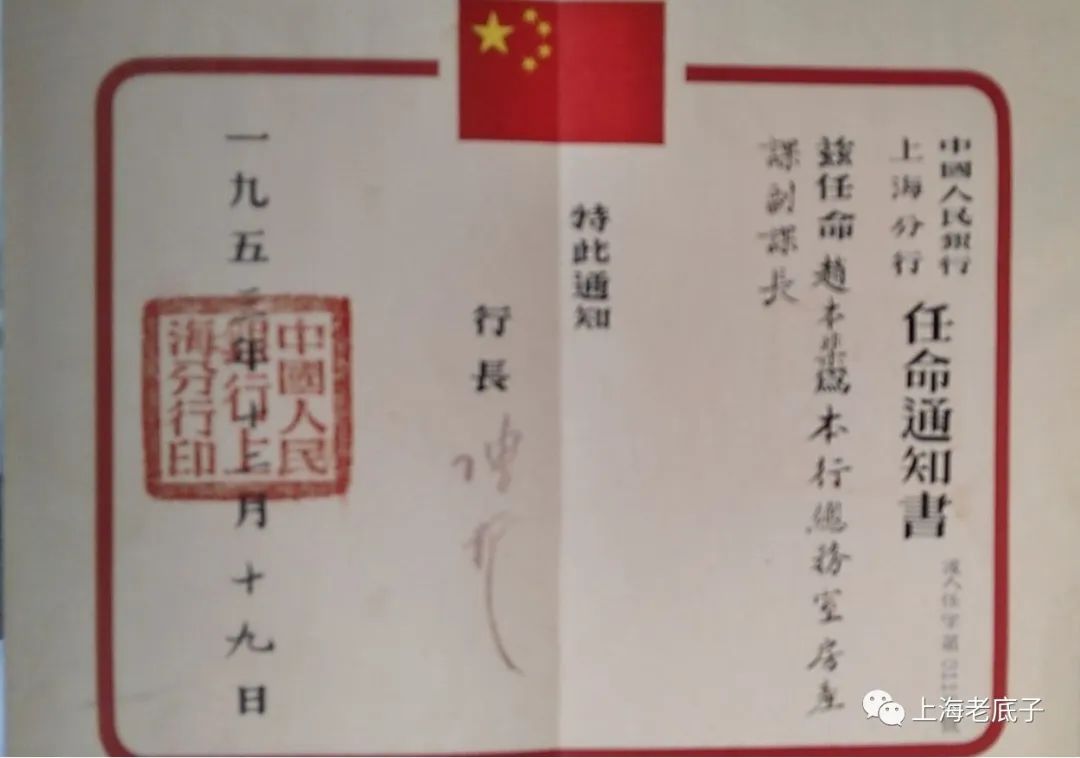 中國人民銀行
上海分行
任命通知書
茲任命趙本業為本行總務室房產
課副課長
特此通知
行長
一九五二年十二月十九日
中國人民
銀行上
海分行印
上海老底子